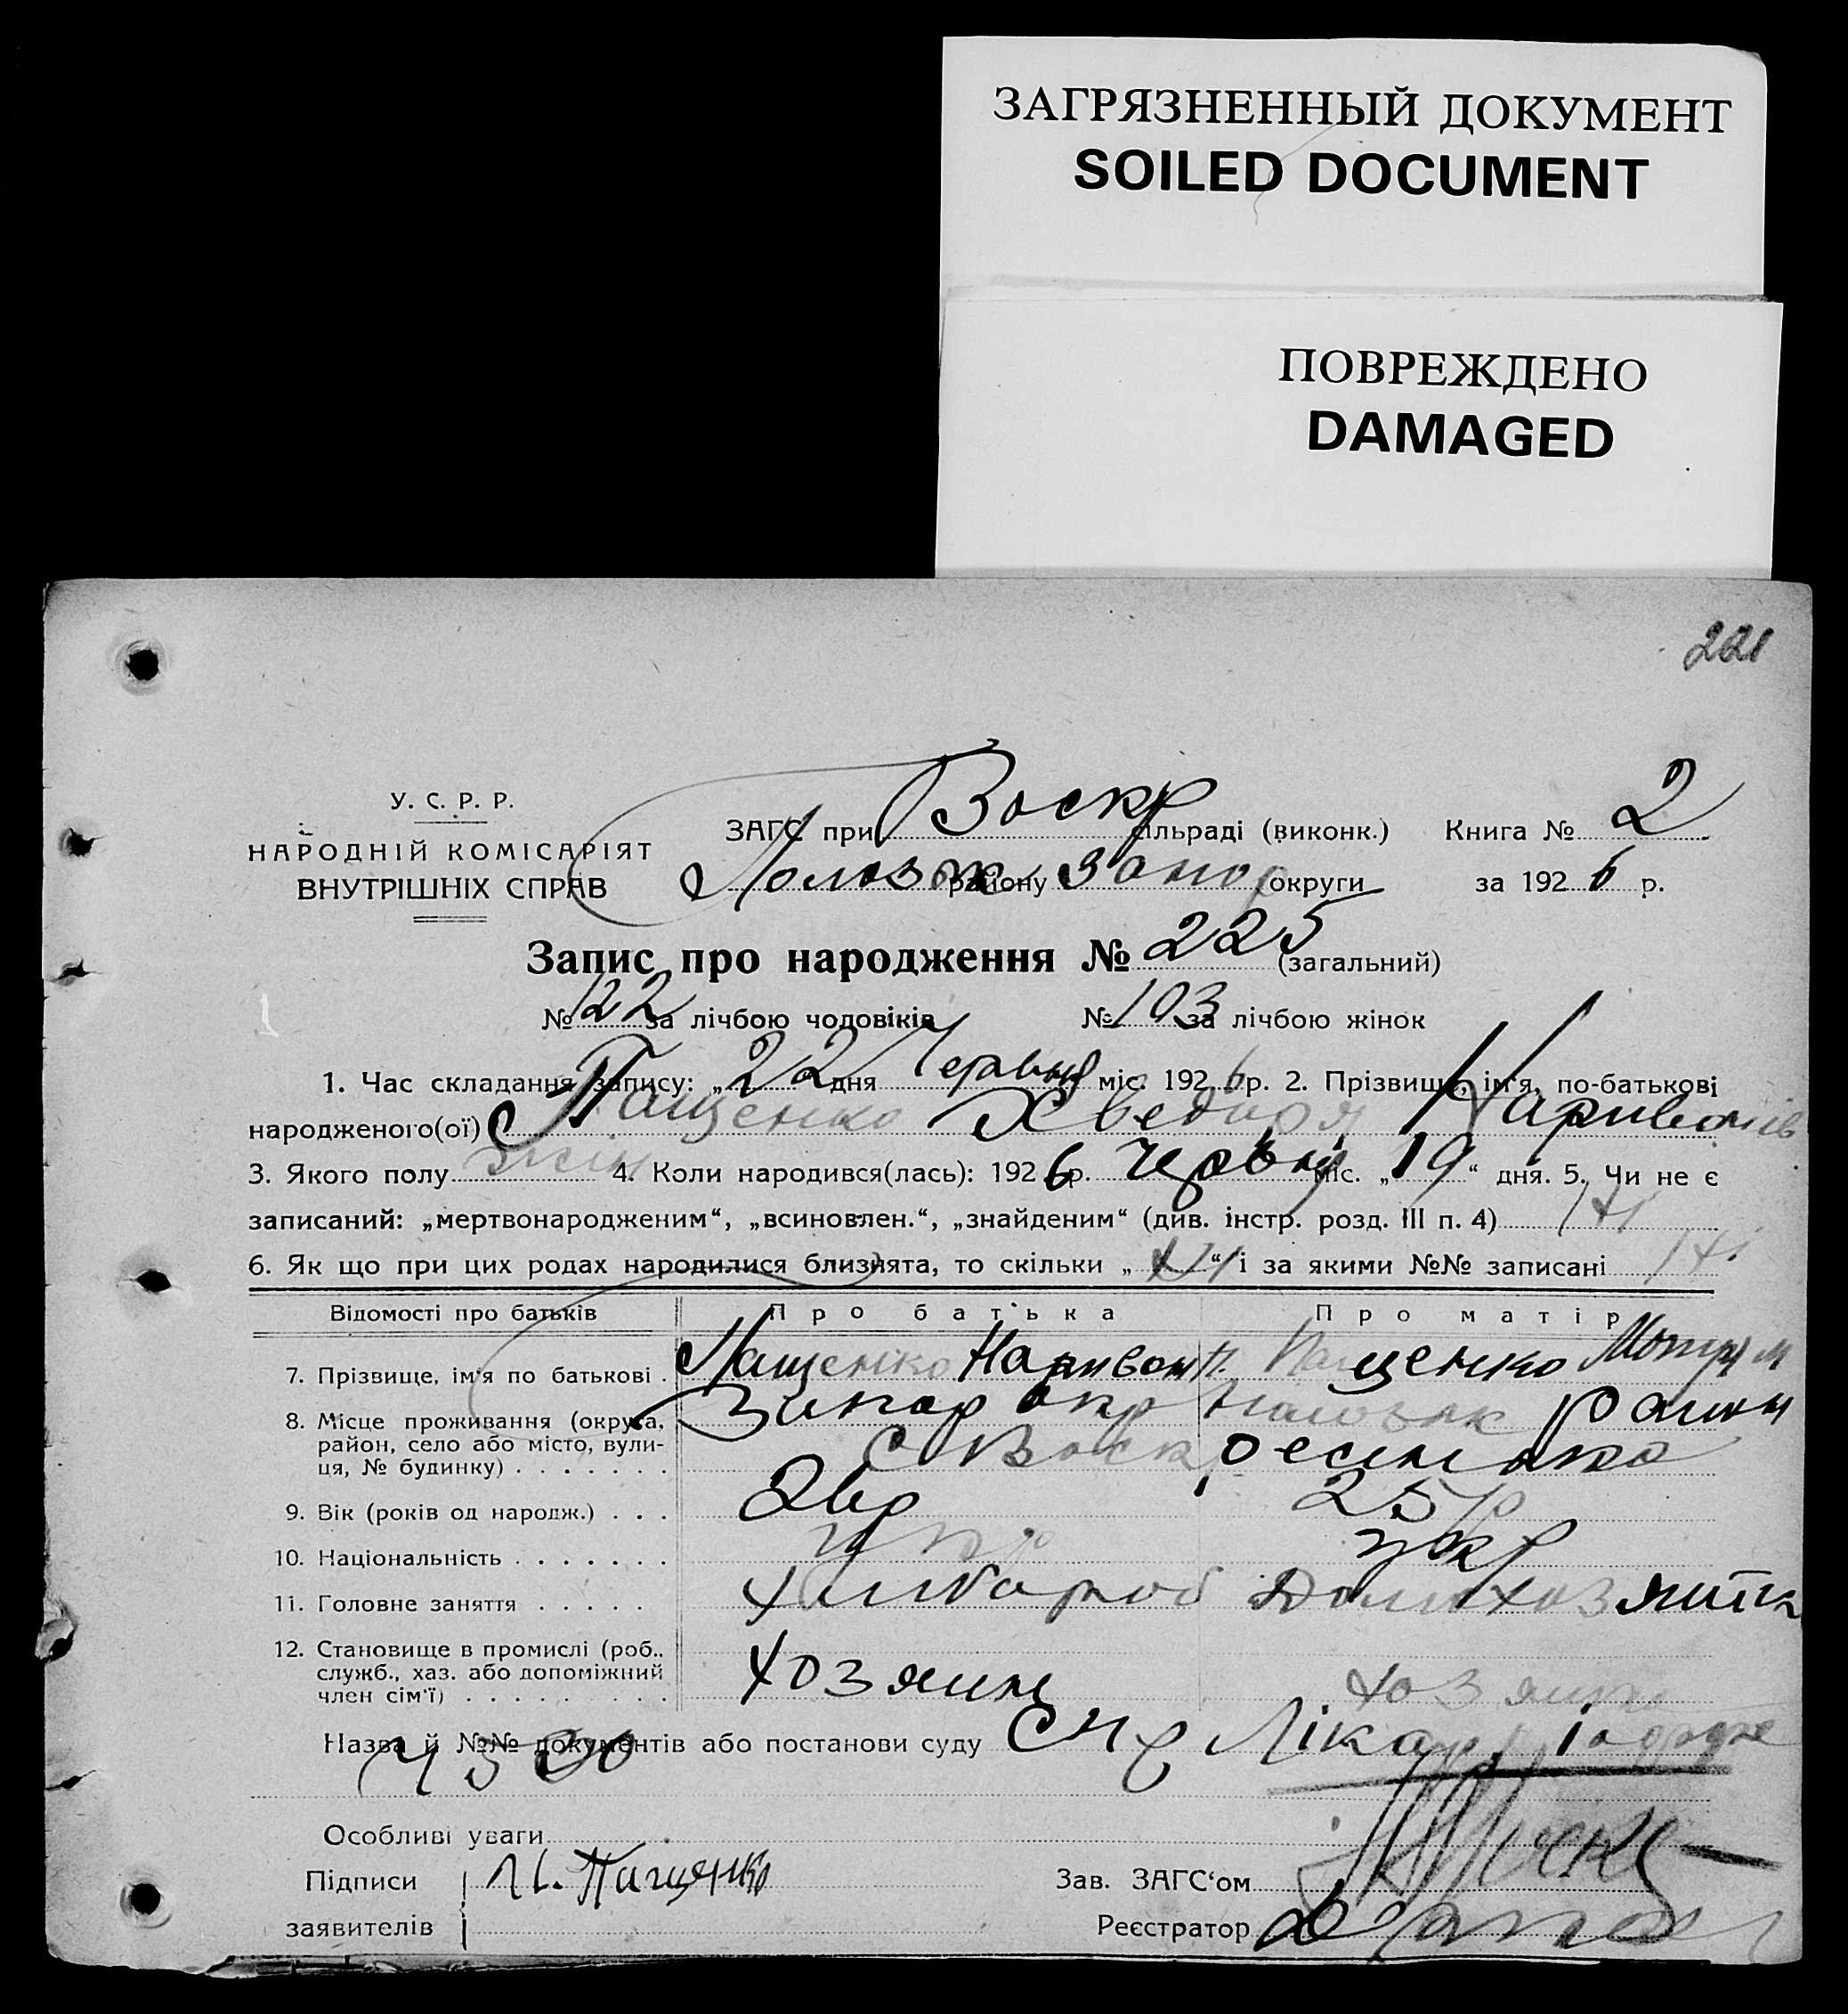 ЗАГРЯЗНЕННЫЙ ДОКУМЕНТ
SOILED DOCUMENT
ПОВРЕЖДЕНО
DAMAGED
221
У. С. Р. Р.
НАРОДНІЙ КОМІСАРІЯТ
ВНУТРІШНІХ СПРАВ
ЗАГС при Воскр сільраді (виконк.) Книга № 2
Полозьк району Запор округи за 1926 р.
Запис про народження № 225 (загальний)
№ 122 за лічбою чоловіків № 103 за лічбою жінок
1. Час складання запису: „22" дня Червня міс. 1926 р. 2. Прізвище, ім'я, по-батькові
народженого(ої) Пащенко Хведора
3. Якого полу жін 4. Коли народився(лась): 1926 р. Червня міс. „19" дня. 5. Чи не є
записаний: „мертвонародженим", „всиновлен.", „знайденим" (див. інстр. розд. III п. 4) ні
6. Як що при цих родах народилися близнята, то скільки „ні" і за якими №№ записані ні
Відомості про батьків Про батька Про матір
7. Прізвище, ім'я по батькові . Пащенко Пащенко
8. Місце проживання (округа, Запор окр район
район, село або місто, вули- с Воскресенка
ця, № будинку) . . . . . . .
9. Вік (років од народж.) . . . 26 р 25 р
10. Національність . . . . . . . укр укр
11. Головне заняття . . . . . Хлибороб Домохозяйка
12. Становище в промислі (роб.,
служб., хаз. або допоміжний хозяин хозяйка
член сім'ї) . . . . . . . . .
Назва й №№ документів або постанови суду Лікар
Особливі уваги
Підписи Пащенко Зав. ЗАГС'ом
заявителів Реєстратор